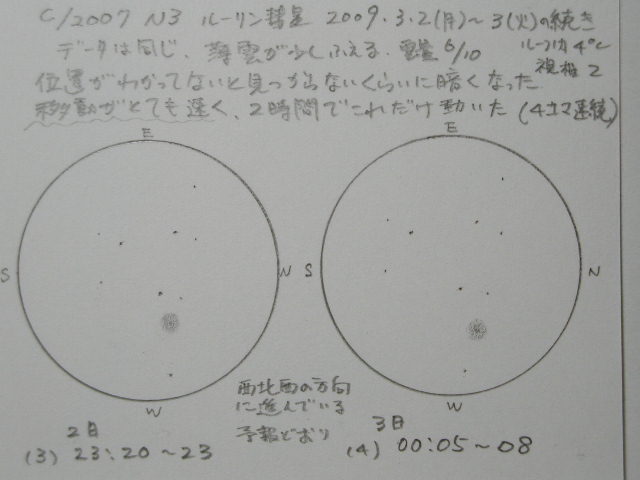 C/2007 N3 ルーリン彗星 2009.3.2(月)～3(火)の続き
データは同じ、薄雲が少しふえる、雲量 6/10
4℃
視相 2
位置がわかってないと見つからないくらいに暗くなった
移動がとても速く、2時間でこれだけ動いた (4コマ連続)
E
S
N
W
E
S
N
W
西北西の方向
に進んでいる
予報どおり
2日
(3) 23:20～23
3日
(4) 00:05～08